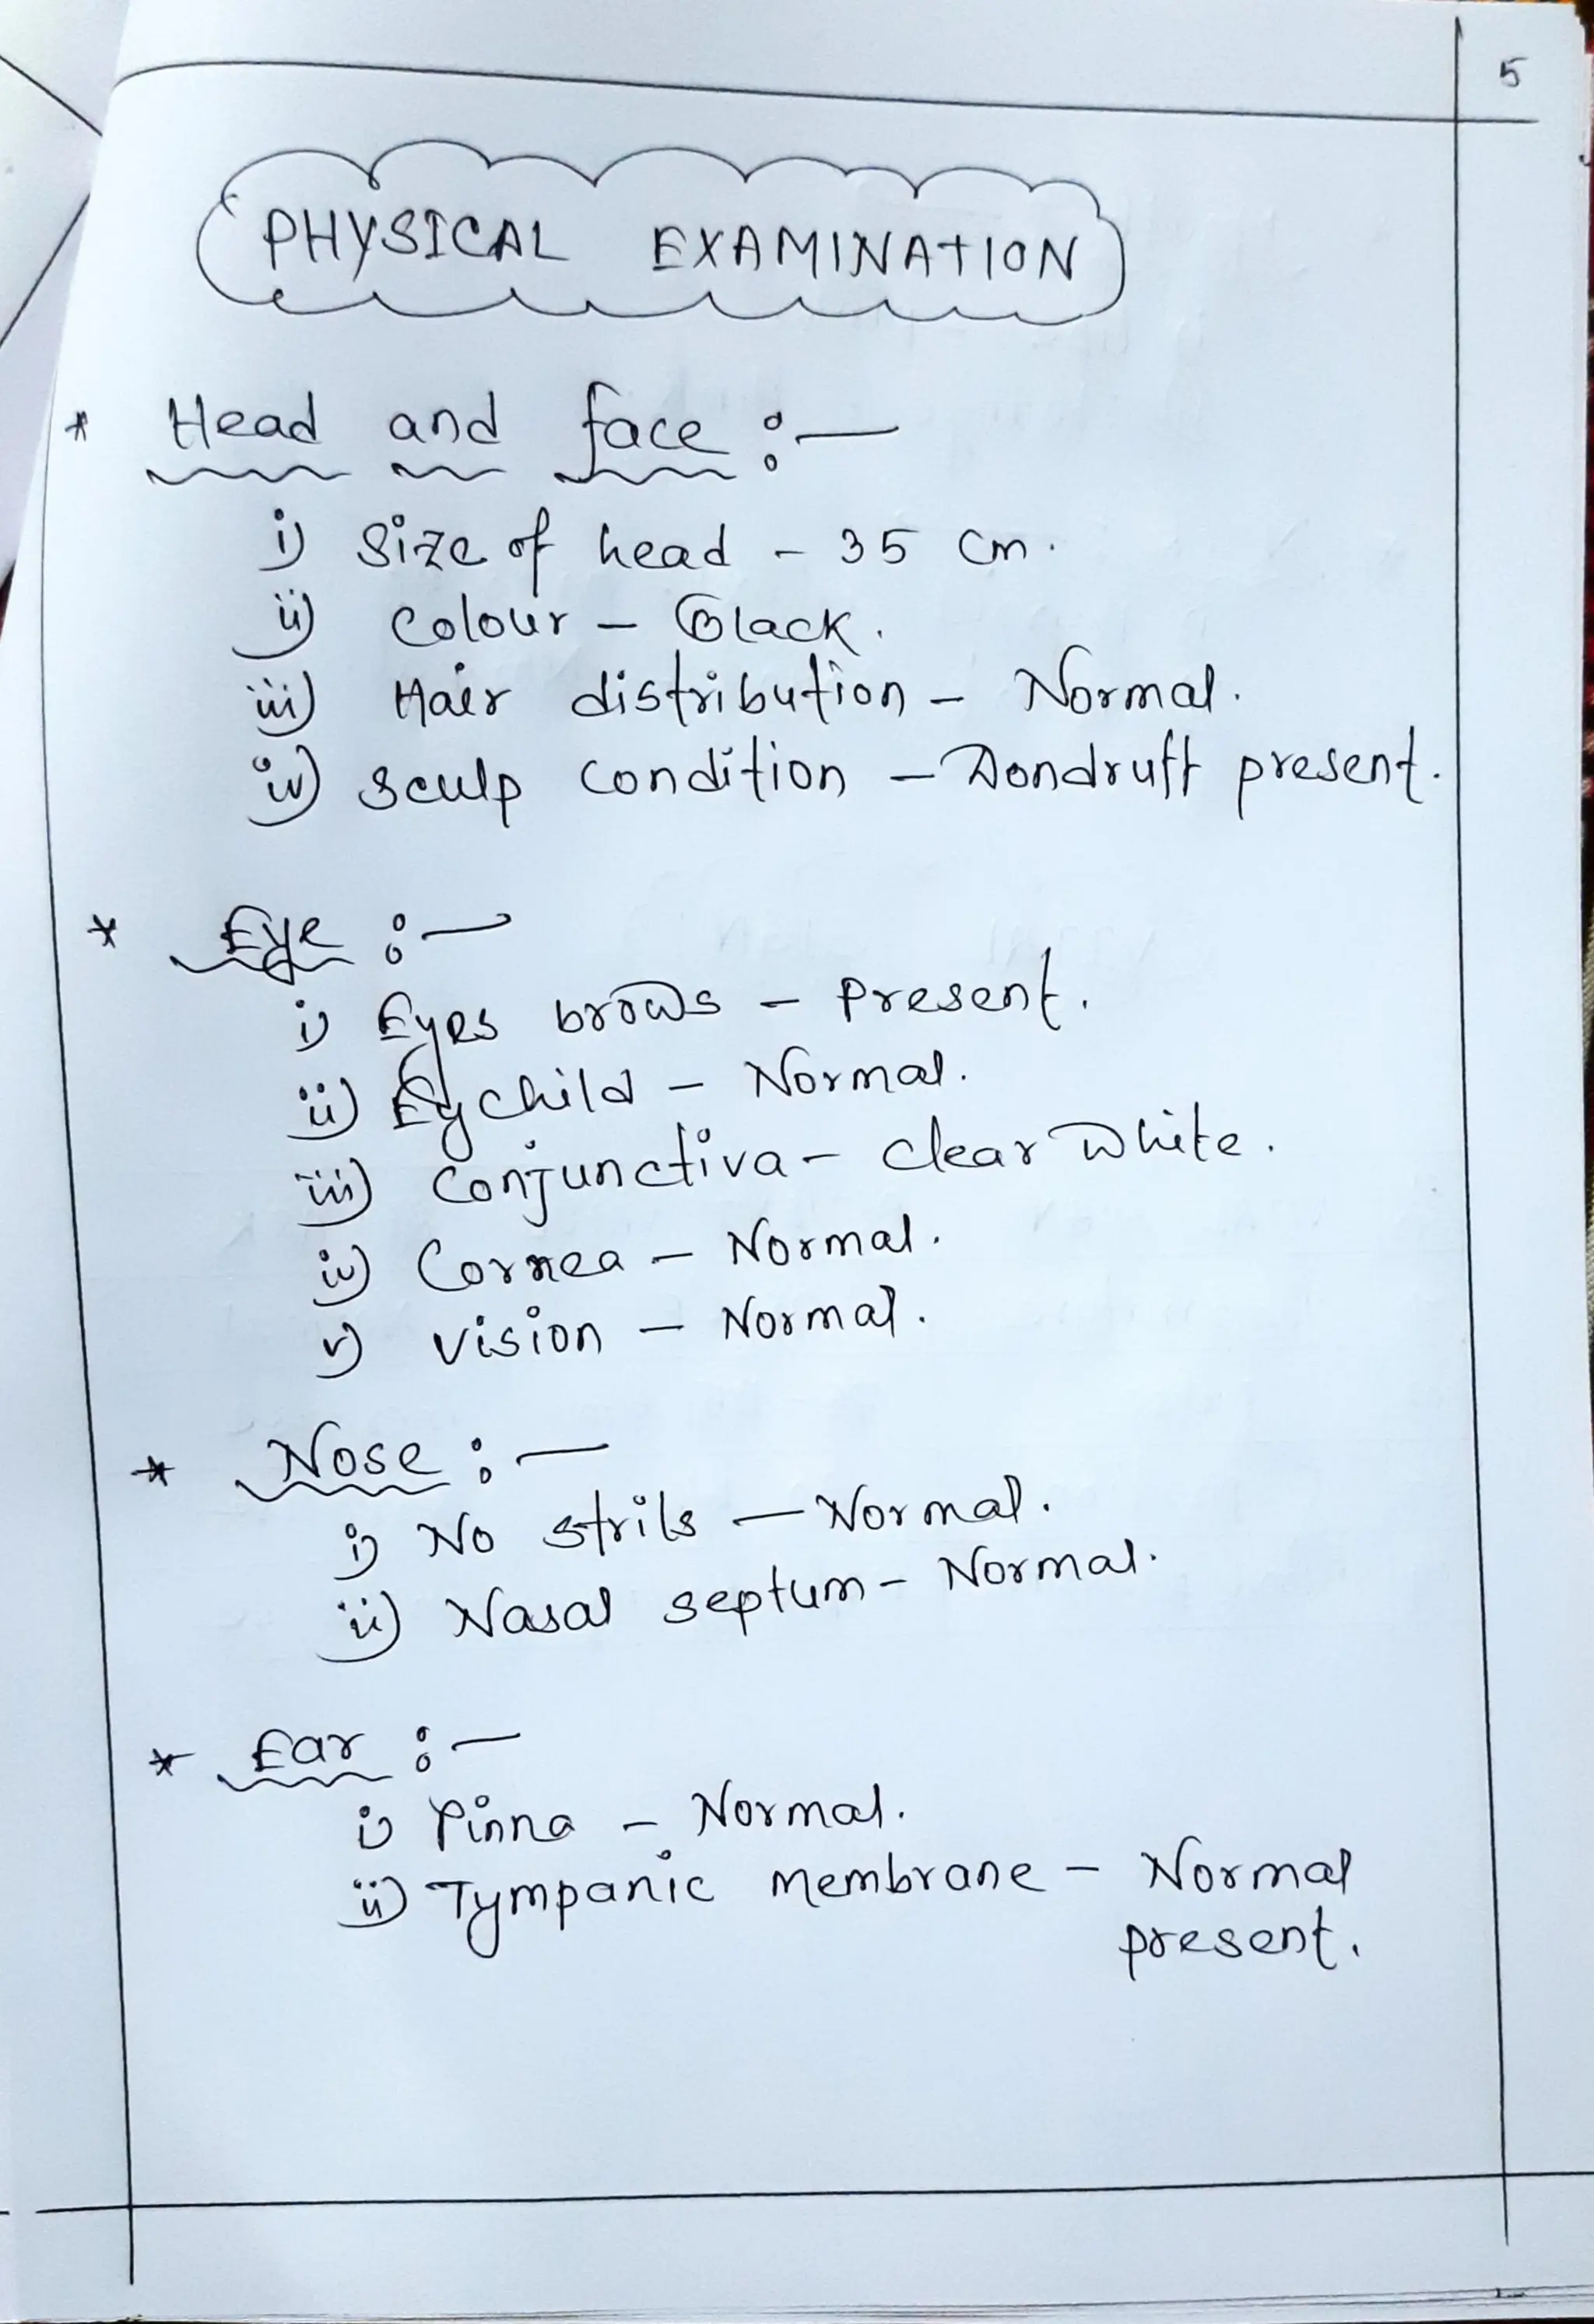 5
PHYSICAL EXAMINATION
* Head and face :-
i) Size of head - 35 cm.
ii) Colour - Black.
iii) Hair distribution - Normal.
iv) Sculp condition - Dondruff present.
* Eye :-
i) Eyes brows - Present.
ii) Eychild - Normal.
iii) Conjunctiva - clear white.
iv) Cornea - Normal.
v) vision - Normal.
* Nose :-
i) No strils - Normal.
ii) Nasal septum - Normal.
* Ear :-
i) Pinna - Normal.
ii) Tympanic membrane - Normal
present.